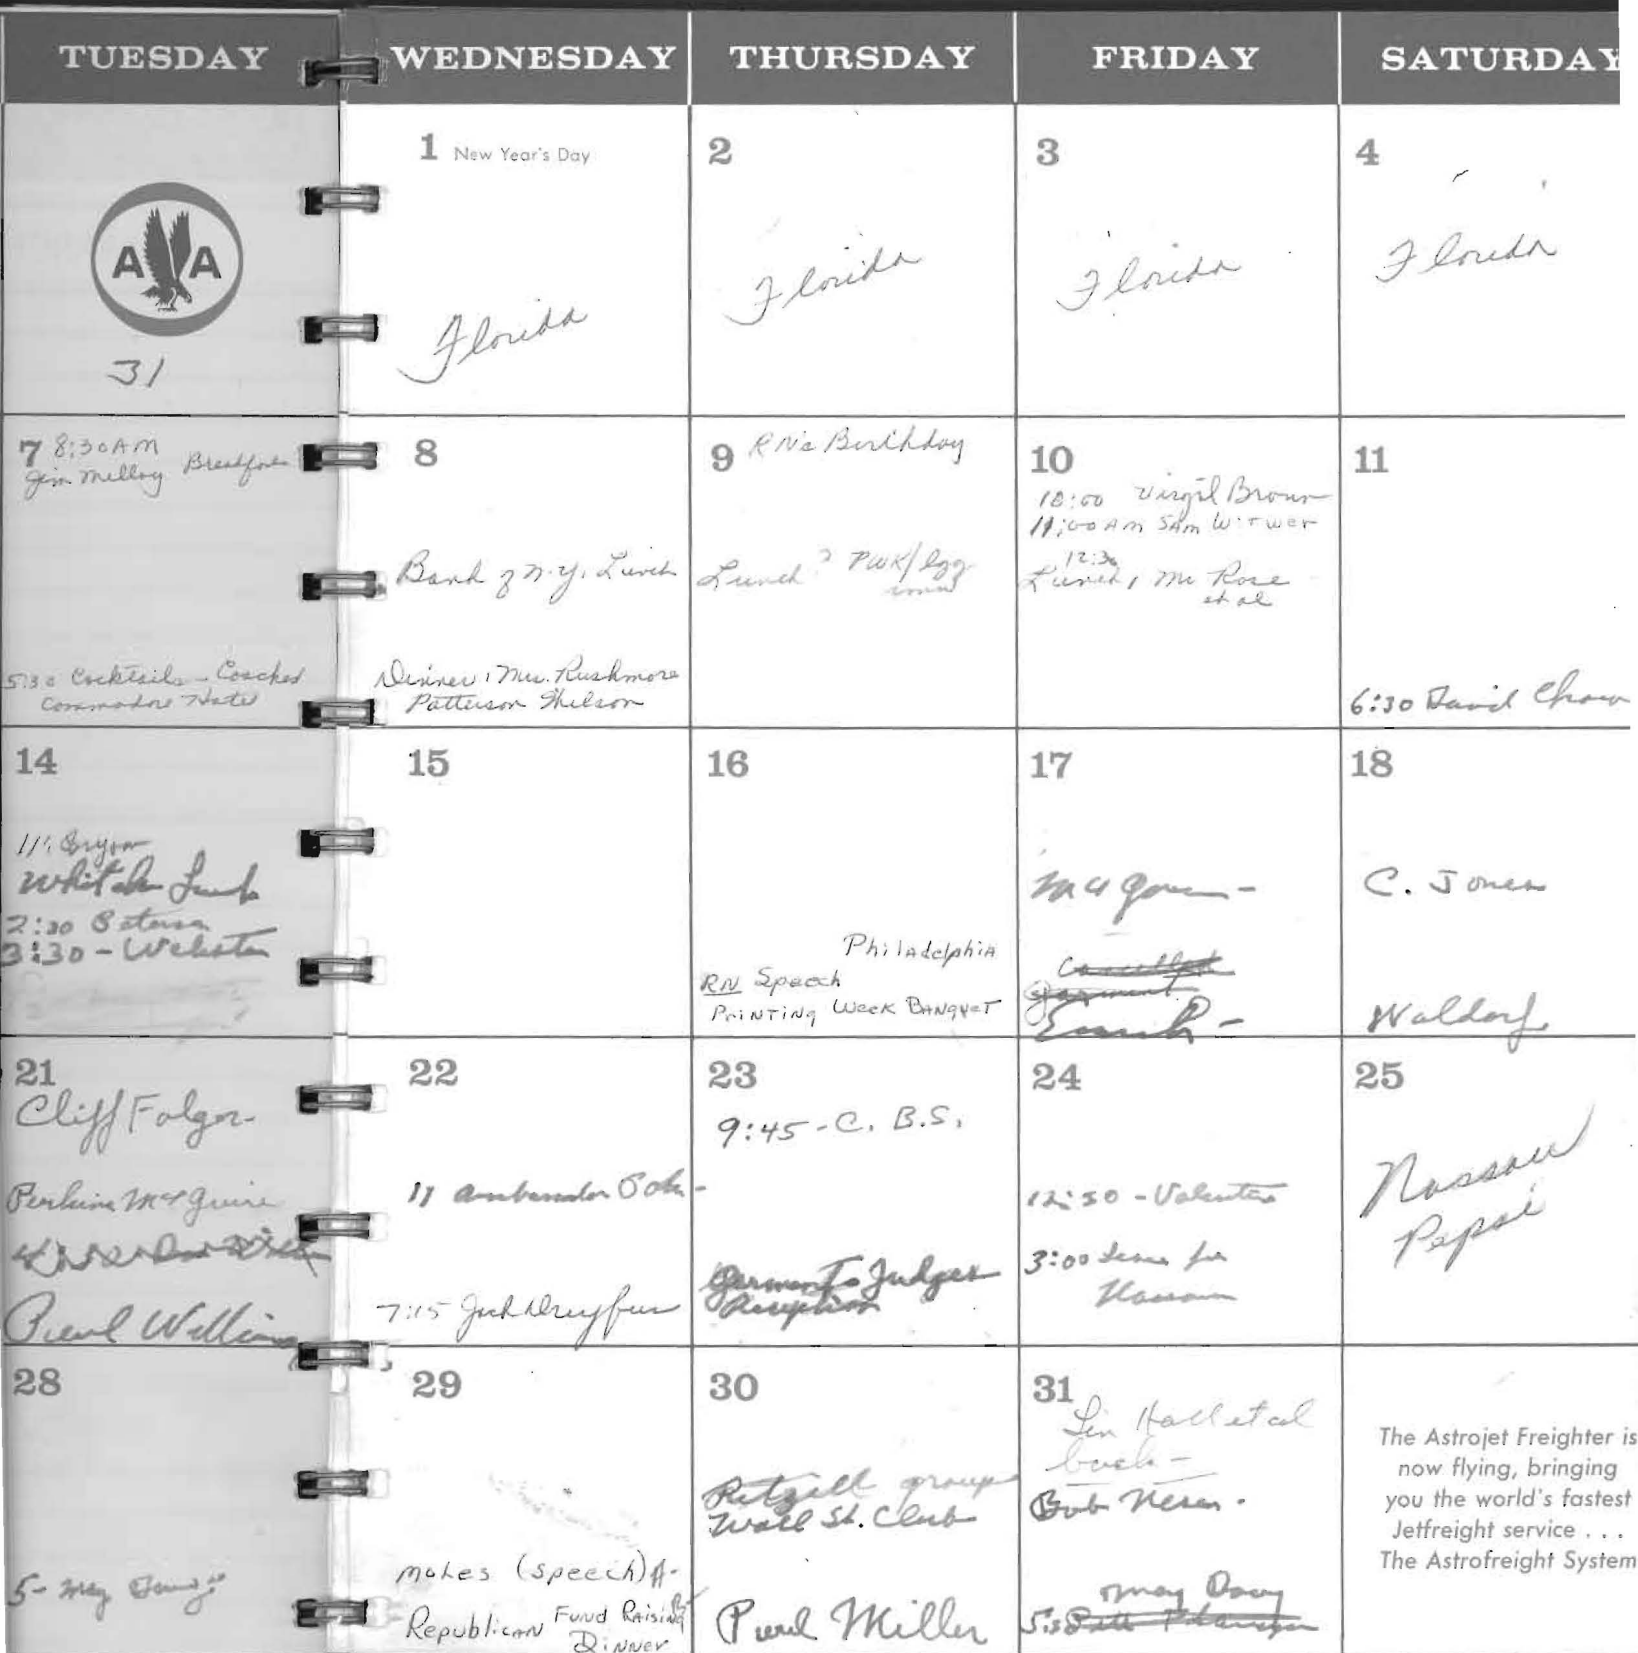 TUESDAY WEDNESDAY THURSDAY FRIDAY SATURDAY
A A
31
1 New Year's Day
Florida
2
Florida
3
Florida
4
Florida
7 8:30 AM
Jim Breakfast
5:30 Cocktails - Coaches
Commodore Hotel
8
Bank of N.Y. Lunch
Dinner, Mrs. Rushmore
Patterson
9 RN's Birthday
Lunch ? PWK/
10
10:00 Virgil Brown
11:00 AM SAM WITWER
12:30
Lunch, Mr Rose
et al
11
6:30 David
14
11:
Lunch
2:30
3:30 - Webster
15
16
Philadelphia
RN Speech
Printing Week Banquet
17
18
C. Jones
Waldorf
21
Cliff Folger
Perkins McGuire
Pearl
22
11 Ambassador
7:15 Jack Dreyfus
23
9:45 - C. B. S.
Garment - Judges
Reception
24
12:30 -
3:00 Leave for
Nassau
25
Nassau
Pepsi
28
5 -
29
Makes (speech) A-
Republican Fund Raising
Dinner
30
group
Wall St. Club
Paul Miller
31
Len Hall et al
Bob
The Astrojet Freighter is
now flying, bringing
you the world's fastest
Jetfreight service . . .
The Astrofreight System